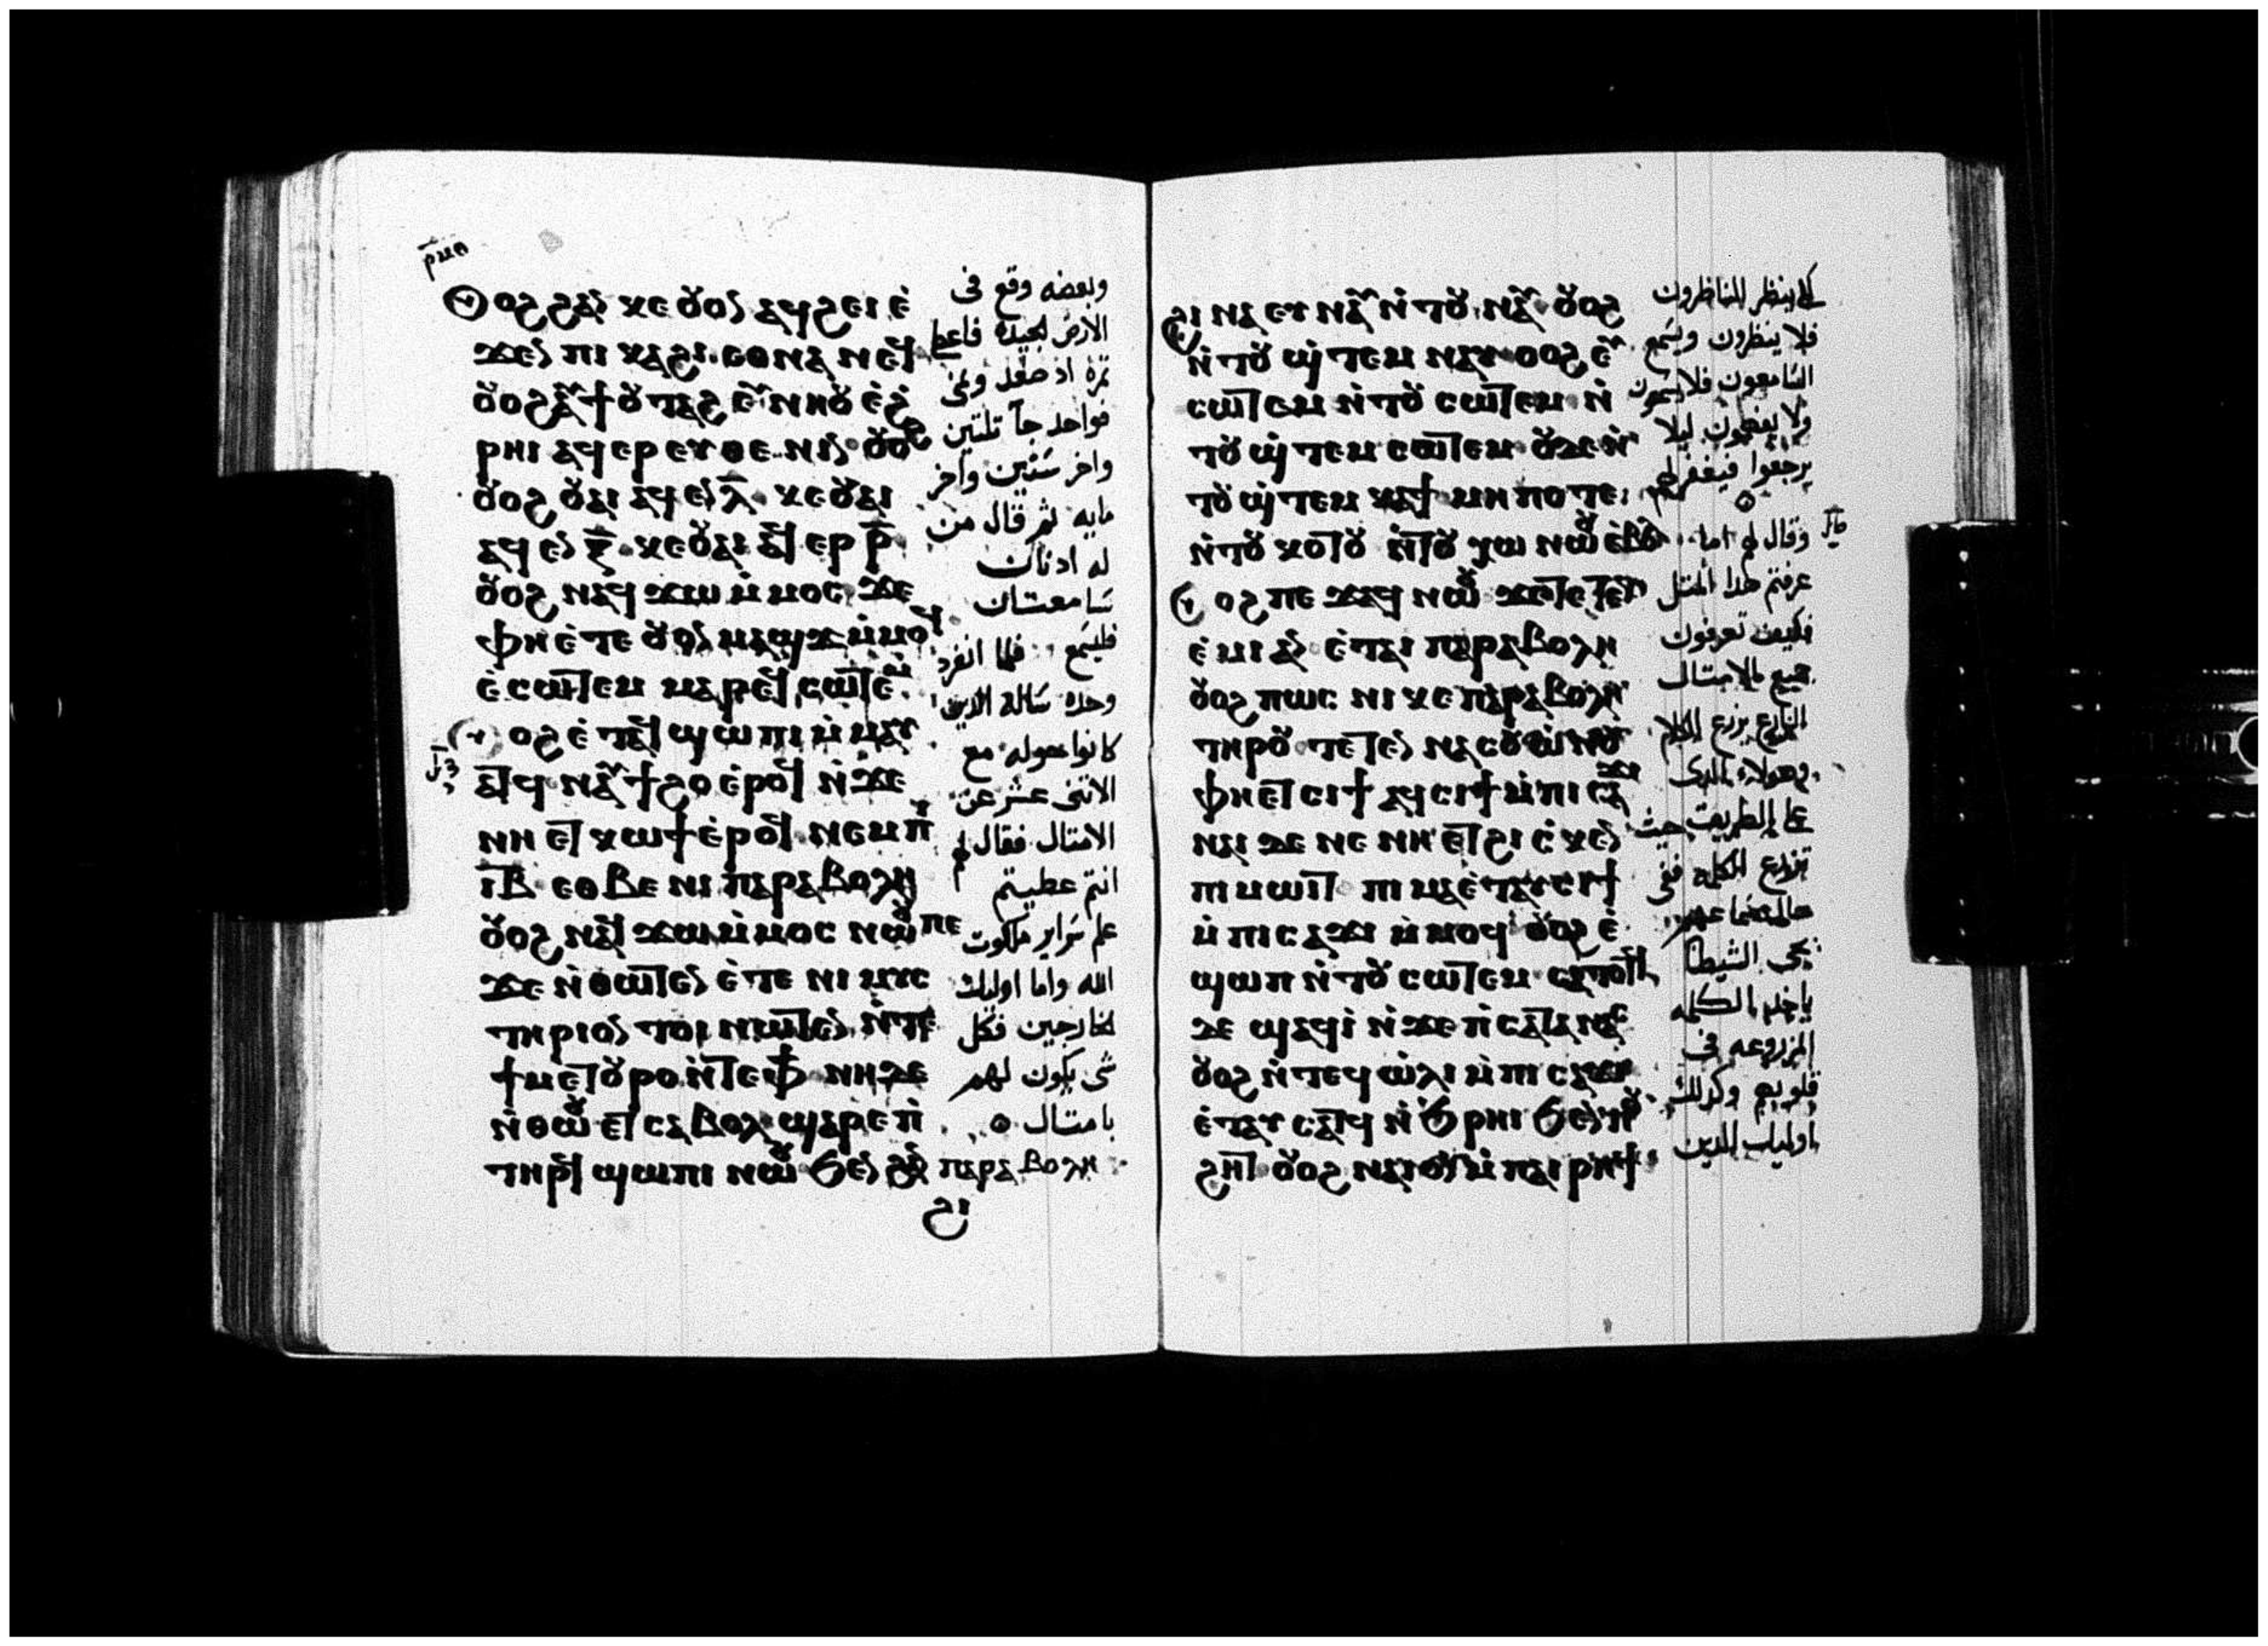 ⲣ̅ⲙⲏ
ⲟⲩⲟϩ ϩⲁⲛ ⲕⲉ ⲟⲩⲟⲛ ⲁϥϩⲉⲓ ⲉ̀
ϫⲉⲛ ⲡⲓ ⲕⲁϩⲓ ⲉⲑⲛⲁⲛⲉϥ
ⲟⲩⲟϩ ⲛⲁϥϯ ⲟⲩⲧⲁϩ ⲉϥⲛⲏⲟⲩ ⲉ̀ϩ̀
ⲣⲏⲓ ⲁϥⲉⲣ ⲉⲩⲑⲉⲛⲓⲛ ⲟⲩⲟϩ
ⲟⲩⲟϩ ⲟⲩⲁⲓ ⲁϥⲉⲛ ⲗ̅ ⲕⲉⲟⲩⲁⲓ
ⲁϥⲉⲛ ⲝ̅ ⲕⲉⲟⲩⲁⲓ ⲁϥⲉⲣ ⲣ̅
ⲟⲩⲟϩ ⲛⲁϥϫⲱ ⲙ̀ⲙⲟⲥ ϫⲉ
ⲫⲏⲉ̀ⲧⲉ ⲟⲩⲟⲛ ⲙⲁϣϫ ⲙ̀ⲙⲟϥ
ⲉ̀ⲥⲱⲧⲉⲙ ⲙⲁⲣⲉϥⲥⲱⲧⲉⲙ
ⲟⲩⲟϩ ⲉ̀ⲧⲁϥϣⲱⲡⲓ ⲙ̀ⲙⲁⲩ
ⲁⲧϥ ⲛⲁⲩϯϩⲟ ⲉ̀ⲣⲟϥ ⲛ̀ϫⲉ
ⲛⲏ ⲉⲧⲕⲱϯ ⲉ̀ⲣⲟϥ ⲛⲉⲙ ⲡⲓ
ⲓ̅ⲃ̅ ⲉⲑⲃⲉ ⲛⲓ ⲡⲁⲣⲁⲃⲟⲗⲏ
ⲟⲩⲟϩ ⲛⲁϥϫⲱ ⲙ̀ⲙⲟⲥ ⲛⲱⲟⲩ ⲡⲉ
ϫⲉ ⲛ̀ⲑⲱⲧⲉⲛ ⲉ̀ⲧⲉ ⲛⲓ ⲙⲩⲥ
ⲧⲏⲣⲓⲟⲛ ⲧⲟⲓ ⲛⲱⲧⲉⲛ ⲛ̀ⲧⲉ
ϯⲙⲉⲧⲟⲩⲣⲟ ⲛ̀ⲧⲉⲫϯ ⲛⲏ ϫⲉ
ⲛ̀ⲑⲱⲟⲩ ⲉⲧⲥⲁⲃⲟⲗ ϣⲁⲣⲉⲡⲓ
ⲧⲏⲣϥ ϣⲱⲡⲓ ⲛⲱⲟⲩ ϧⲉⲛ ϩⲁⲛ ⲡⲁⲣⲁⲃⲟⲗⲏ
ϩⲓ
وبعضه وقع فى
الارض الجيده فاعطا
ثمرة اذ صعد ونمى
فواحد جآ ثلثين
واخر ستين واخر
مايه ثم قال من
له اذنان
سامعتان
فليسمع فلما انفرد
وحده ساله الدين
كانوا حوله مع
الاثنى عشر عن
الامثال فقال لهم
انتم عطيتم
علم سراير ملكوت
الله واما اوليك
الخارجين فكل
شى يكون لهم
بامثال
ϩⲓⲛⲁ ⲉⲩⲛⲁⲩ ⲛ̀ⲧⲟⲩ ⲛⲁⲩ ⲟⲩⲟϩ
ⲛ̀ⲧⲟⲩ ϣ̀ⲧⲉⲙ ⲛⲁⲩ ⲟⲩⲟϩ ⲉⲩ
ⲥⲱⲧⲉⲙ ⲛ̀ⲧⲟⲩ ⲥⲱⲧⲉⲙ ⲛ̀
ⲧⲟⲩ ϣ̀ⲧⲉⲙ ⲥⲱⲧⲉⲙ ⲟⲩϫⲉ ⲛ̀
ⲧⲟⲩ ϣ̀ⲧⲉⲙ ⲕⲁϯ ⲙⲏⲡⲟⲧⲉ
ⲛ̀ⲧⲟⲩ ⲕⲟⲧⲟⲩ ⲛ̀ⲧⲟⲩ ⲭⲱ ⲛⲱⲟⲩ ⲉ̀ⲃⲟⲗ
ⲟⲩⲟϩ ⲡⲉϫⲁϥ ⲛⲱⲟⲩ ϫⲉ ⲧⲉⲧⲉⲛ
ⲉ̀ⲙⲓ ⲁⲛ ⲉ̀ⲧⲁⲓ ⲡⲁⲣⲁⲃⲟⲗⲏ
ⲟⲩⲟϩ ⲡⲱⲥ ⲛⲓ ⲕⲉ ⲡⲁⲣⲁⲃⲟⲗⲏ
ⲧⲏⲣⲟⲩ ⲧⲉⲧⲉⲛ ⲛⲁⲥⲟⲩⲱⲛⲟⲩ
ⲫⲏⲉⲧⲥⲓϯ ⲁϥⲥⲓϯ ⲙ̀ⲡⲓⲥⲁϫⲓ
ⲛⲁⲓ ϫⲉ ⲛⲉ ⲛⲏ ⲉⲧϩⲓⲥ̀ⲕⲉⲛ
ⲡⲓⲙⲱⲓⲧ ⲡⲓ ⲙⲁ ⲉ̀ⲧⲁⲩⲥⲓϯ
ⲙ̀ⲡⲓⲥⲁϫⲓ ⲙ̀ⲙⲟϥ ⲟⲩⲟϩ ⲉ̀
ϣⲱⲡ ⲛ̀ⲧⲟⲩ ⲥⲱⲧⲉⲙ ⲥⲁⲧⲟⲧϥ
ϫⲉ ϣⲁϥⲓ̀ ⲛ̀ϫⲉ ⲡ̀ⲥⲁⲧⲁⲛⲁⲥ
ⲟⲩⲟϩ ⲛ̀ⲧⲉϥ ⲱ̀ⲗⲓ ⲙ̀ⲡⲓⲥⲁϫⲓ
ⲉ̀ⲧⲁⲩ ⲥⲁⲧϥ ⲛ̀ϧⲣⲏⲓ ϧⲉⲛ ⲡⲟⲩ
ϩⲏⲧ ⲟⲩⲟϩ ⲛⲁⲓ ⲟⲛ ⲙ̀ⲡⲁⲓⲣⲏϯ
لكى ينظر الناظرون
فلا ينظرون ويسمع
السامعون فلا يسمعون
ولا يفهمون ليلا
يرجعوا فيغفر لهم
وقال لهم اما
عرفتم هذا المثل
فكيف تعرفون
جميع الامثال
الزارع يزرع الكلام
وهولاء الذى
على الطريق حيث
تزرع الكلمه ففى
يجى الشيطان
ياخذ الكلمه
المزروعه فى
قلوبهم وكذلك
اوليك الدين